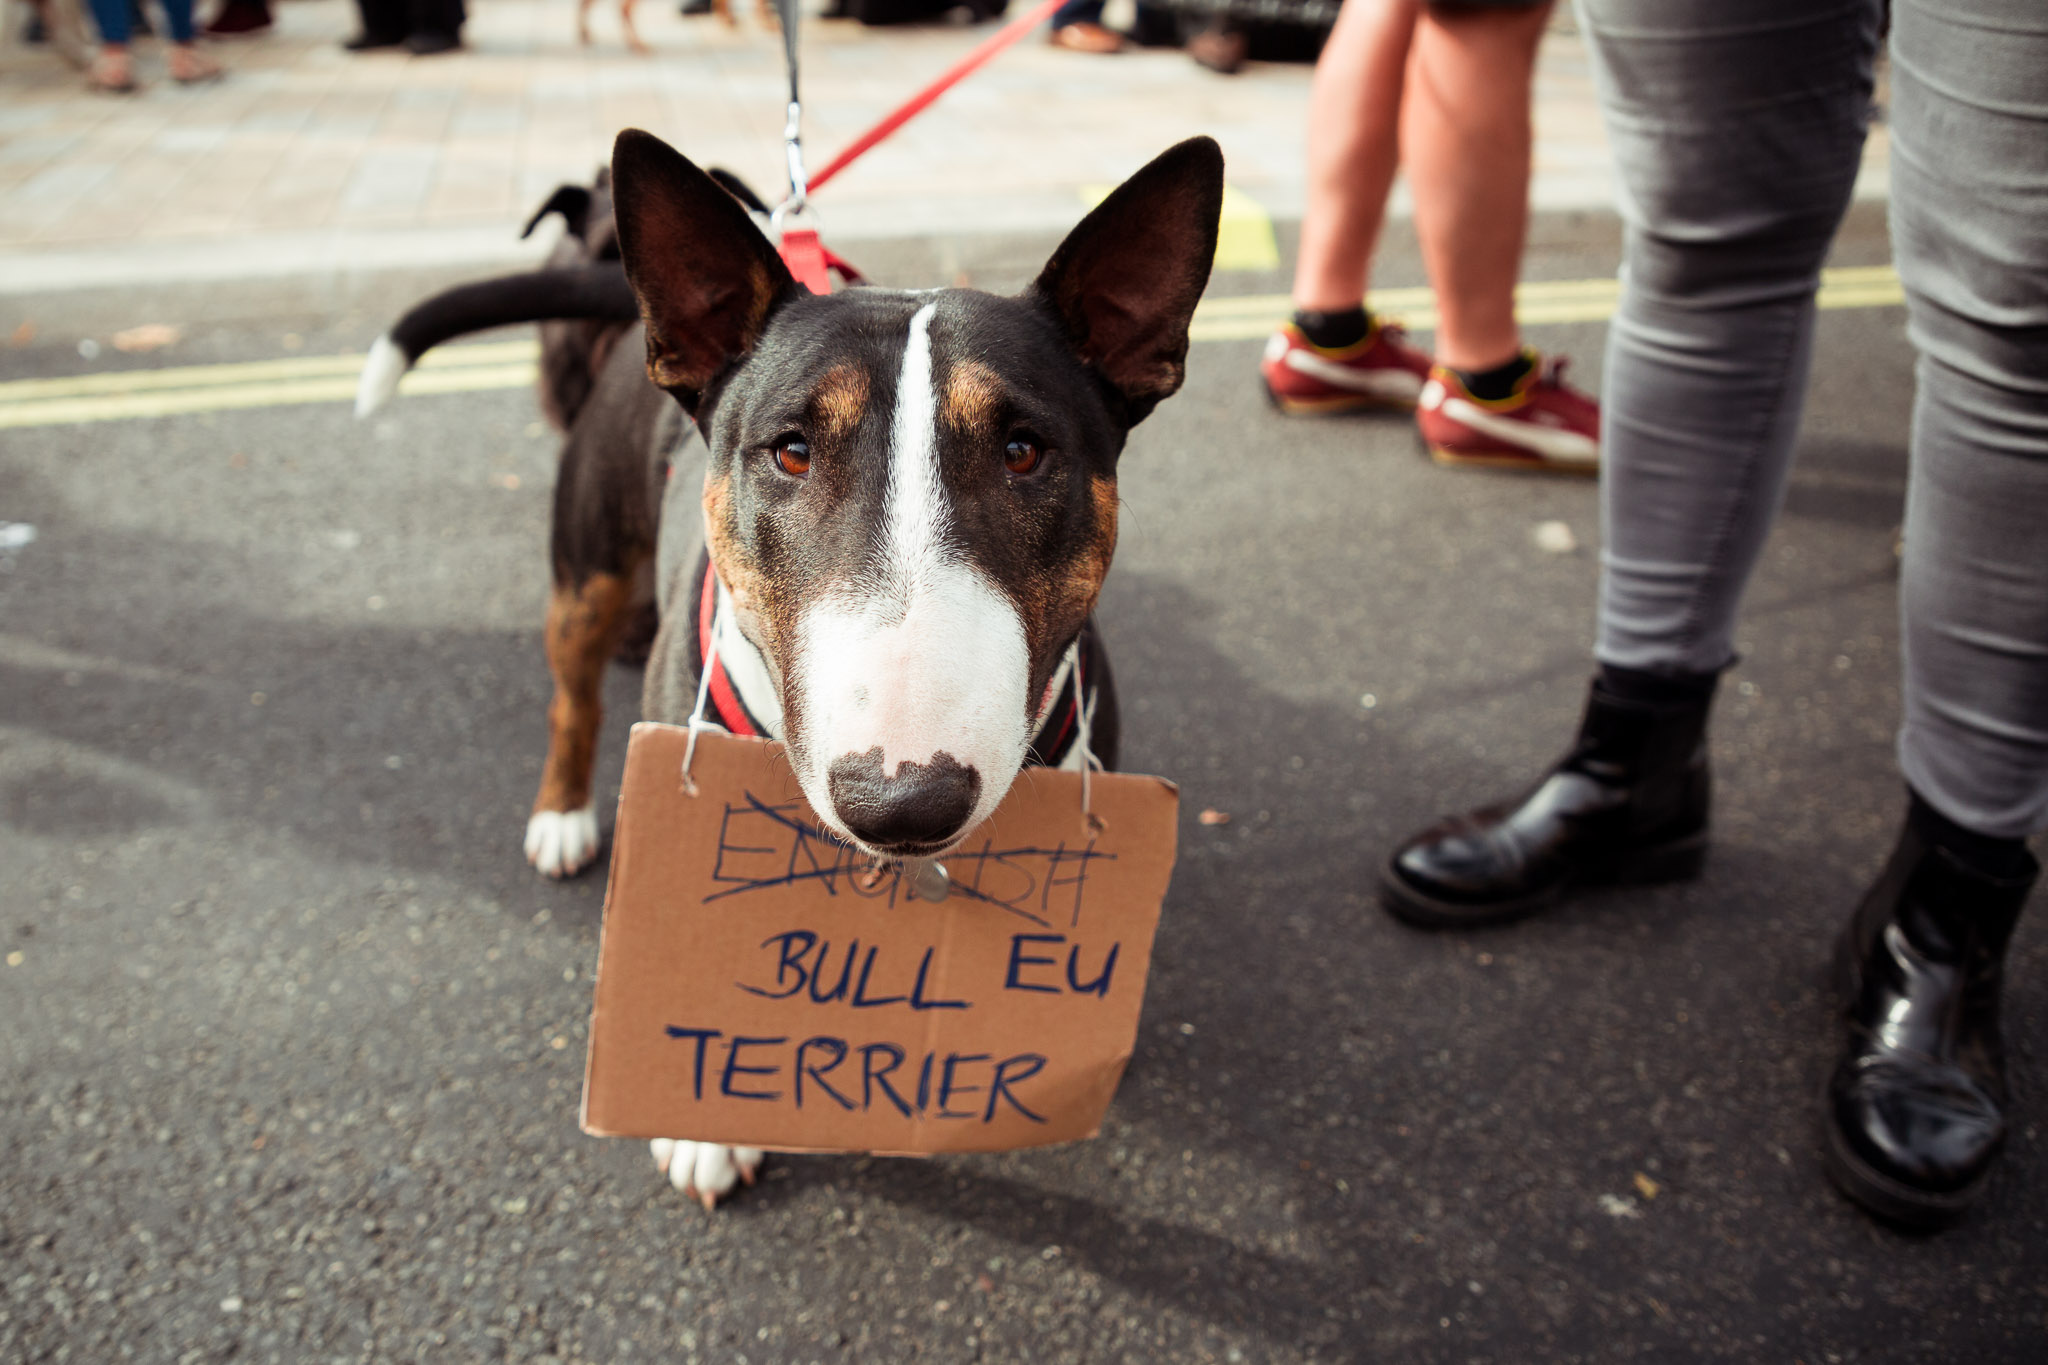 ENGLISH
BULL EU
TERRIER